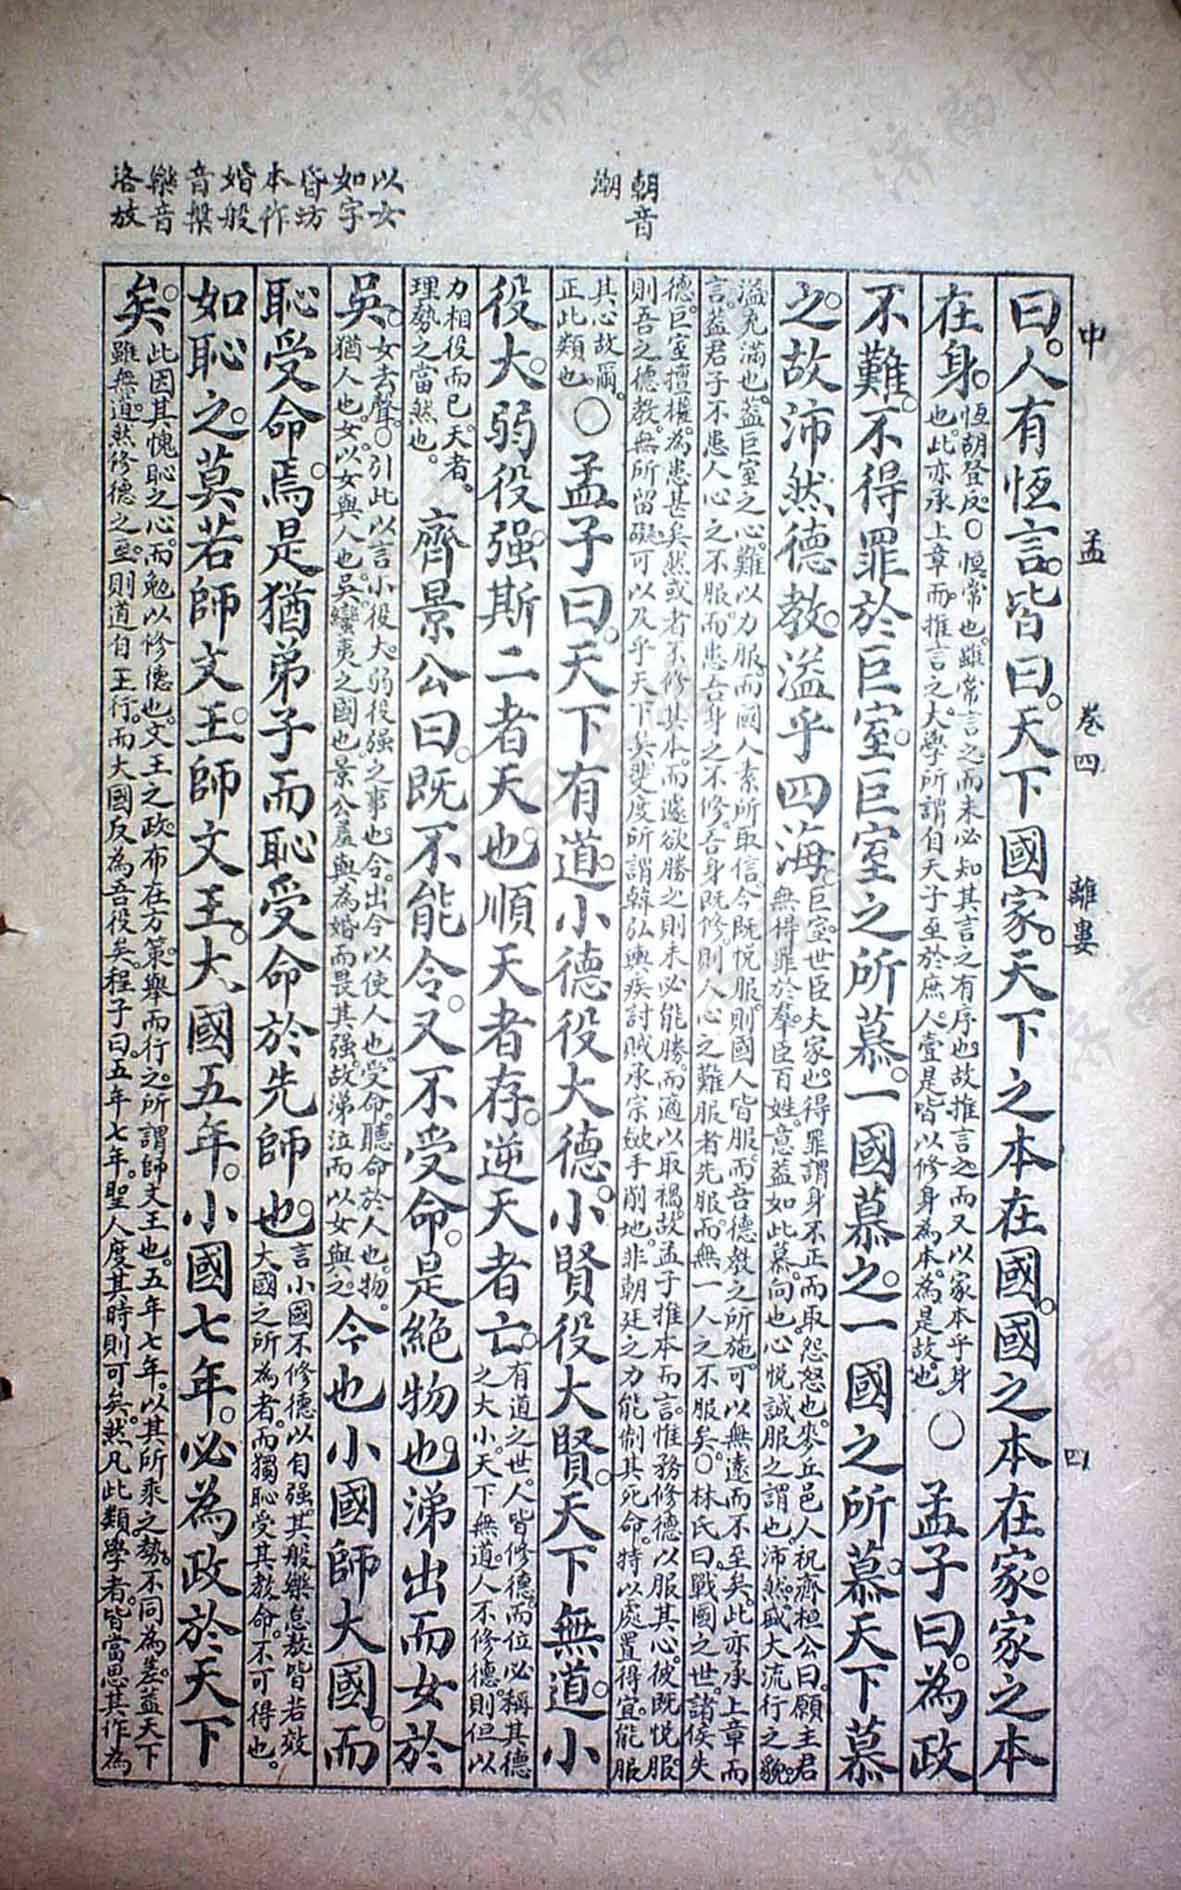 朝音
潮
以女
如字
昏坊
本作
婚般
音槃
樂音
洛放
中 孟 卷四 離婁 四
曰。人有恆言。皆曰。天下國家。天下之本在國。國之本在家。家之本
在身。恆胡登反。○恆常也。雖常言之而未必知其言之有序也。故推言之。而又以家本乎身也。此亦承上章而推言之。大學所謂自天子至於庶人。壹是皆以修身為本。為是故也。○孟子曰。為政
不難。不得罪於巨室。巨室之所慕。一國慕之。一國之所慕。天下慕
之。故沛然德教。溢乎四海。巨室。世臣大家也。得罪謂身不正而取怨怒也。麥丘邑人祝齊桓公曰。願主君無得罪於羣臣百姓。意蓋如此。慕。向也。心悅誠服之謂也。沛然。盛大流行之貌。
溢充滿也。蓋巨室之心。難以力服。而國人素所取信。今既悅服。則國人皆服。而吾德教之所施。可以無遠而不至矣。此亦承上章而言。蓋君子不患人心之不服。而患吾身之不修。吾身既修。則人心之難服者先服。而無一人之不服矣。○林氏曰。戰國之世。諸侯失
德。巨室擅權。為患甚矣。然或者不修其本。而遽欲勝之。則未必能勝。而適以取禍。故孟子推本而言。惟務修德以服其心。彼既悅服則吾之德教。無所留礙。可以及乎天下矣。裴度所謂韓弘輿疾討賊。承宗斂手削地。非朝廷之力能制其死命。特以處置得宜。能服
其心故爾。正此類也。○孟子曰。天下有道。小德役大德。小賢役大賢。天下無道。小
役大。弱役强。斯二者天也。順天者存。逆天者亡。有道之世。人皆修德。而位必稱其德之大小。天下無道。人不修德。則但以
力相役而已。天者。理勢之當然也。齊景公曰。既不能令。又不受命。是絕物也。涕出而女於
吳。女去聲。○引此以言小役大。弱役强之事也。令。出令以使人也。受命。聽命於人也。物。猶人也。女。以女與人也。吳。蠻夷之國也。景公羞與為婚而畏其强。故涕泣而以女與之。今也小國師大國。而
恥受命焉。是猶弟子而恥受命於先師也。言小國不修德以自强。其般樂怠敖。皆若效大國之所為者。而獨恥受其教命。不可得也。
如恥之。莫若師文王。師文王。大國五年。小國七年。必為政於天下
矣。此因其愧恥之心。而勉以修德也。文王之政。布在方策。舉而行之。所謂師文王也。五年七年。以其所乘之勢。不同為差。蓋天下雖無道。然修德之至。則道自王行。而大國反為吾役矣。程子曰。五年七年。聖人度其時則可矣。然凡此類。學者。皆當思其作為